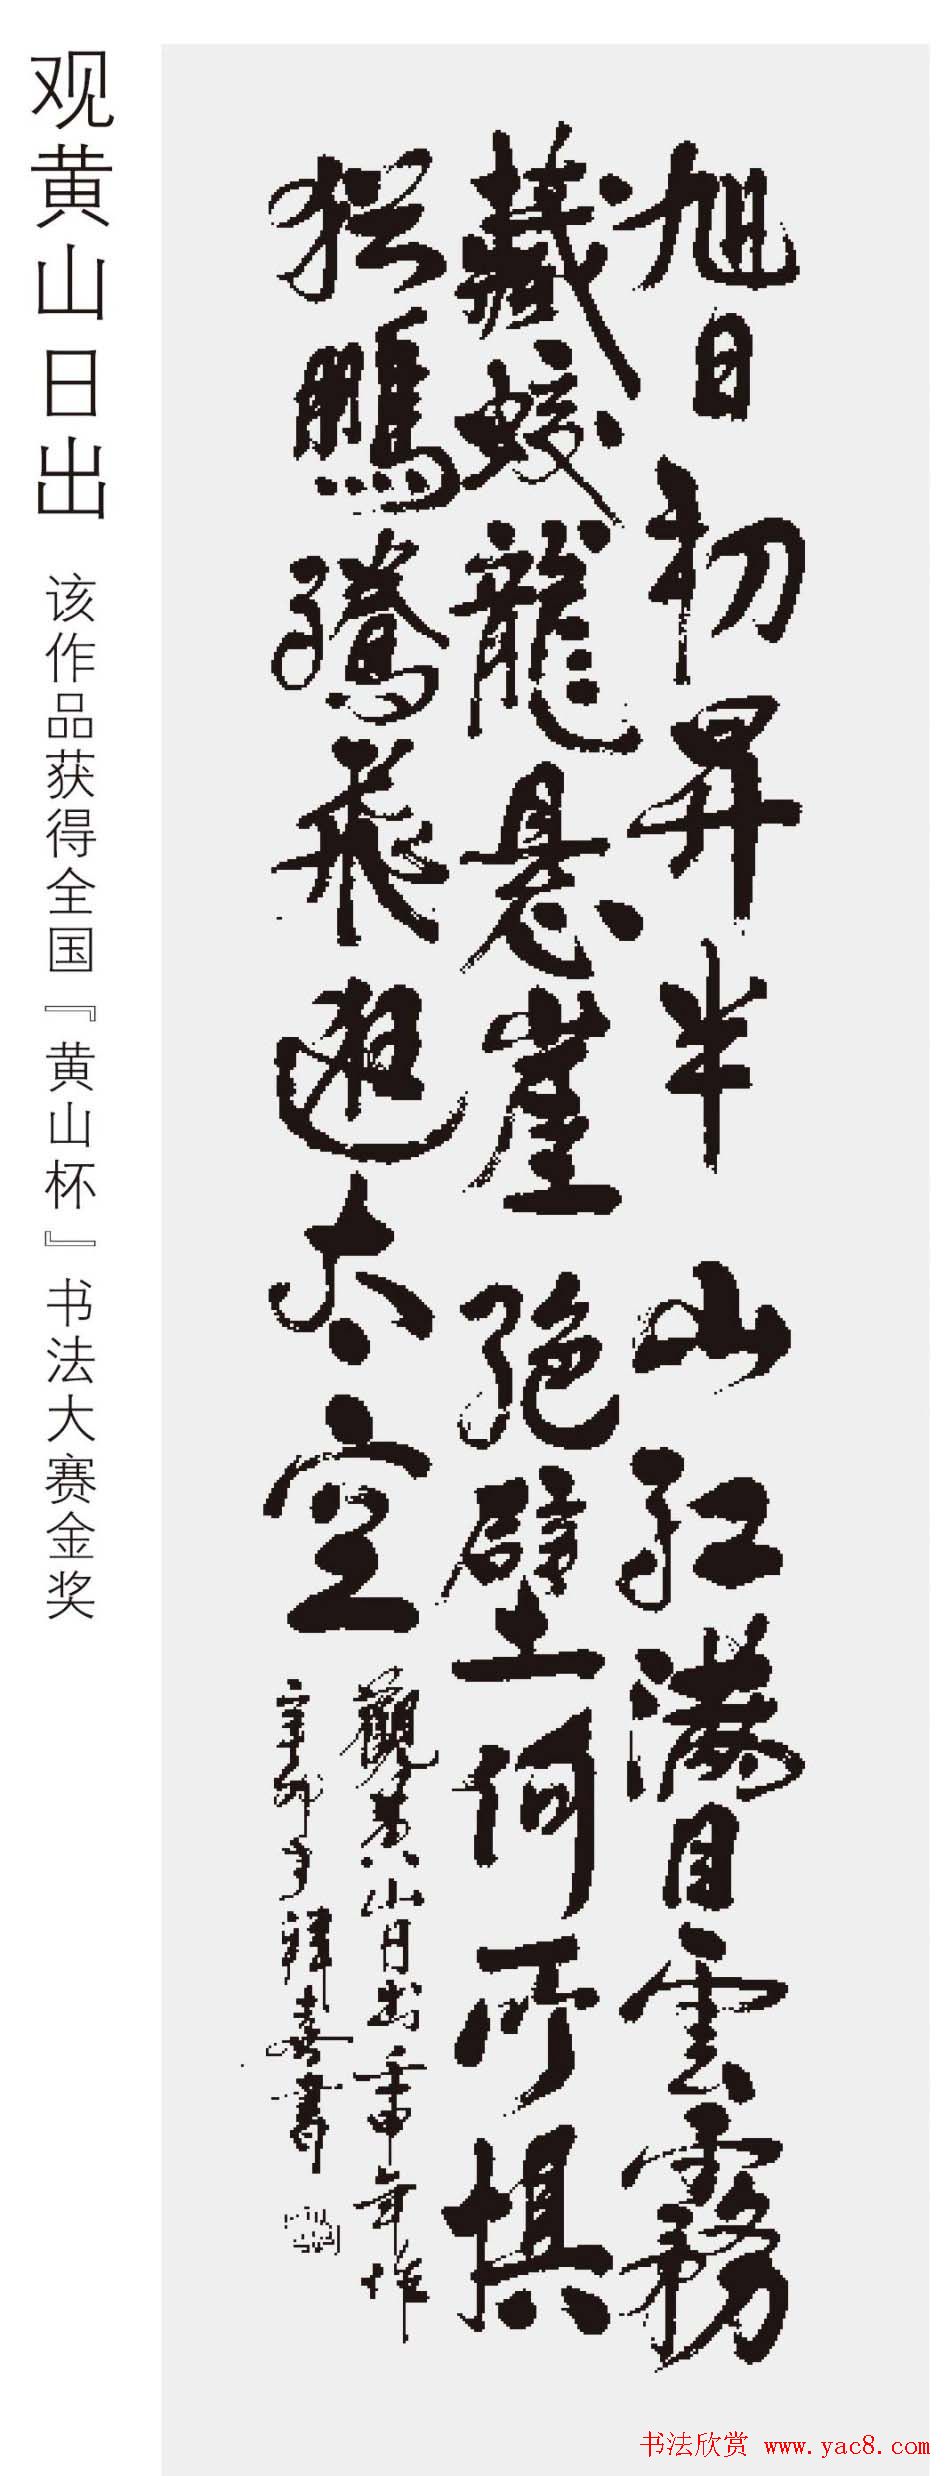 观黄山日出 该作品获得全国『黄山杯』书法大赛金奖
旭日初昇半山红满目雲霧
藏蛟龍悬崖绝壁何所惧
犹鵬騰飛遊太空
觀黄山日出壬申年作
辛卯年祥書
书法欣赏 www.yac8.com